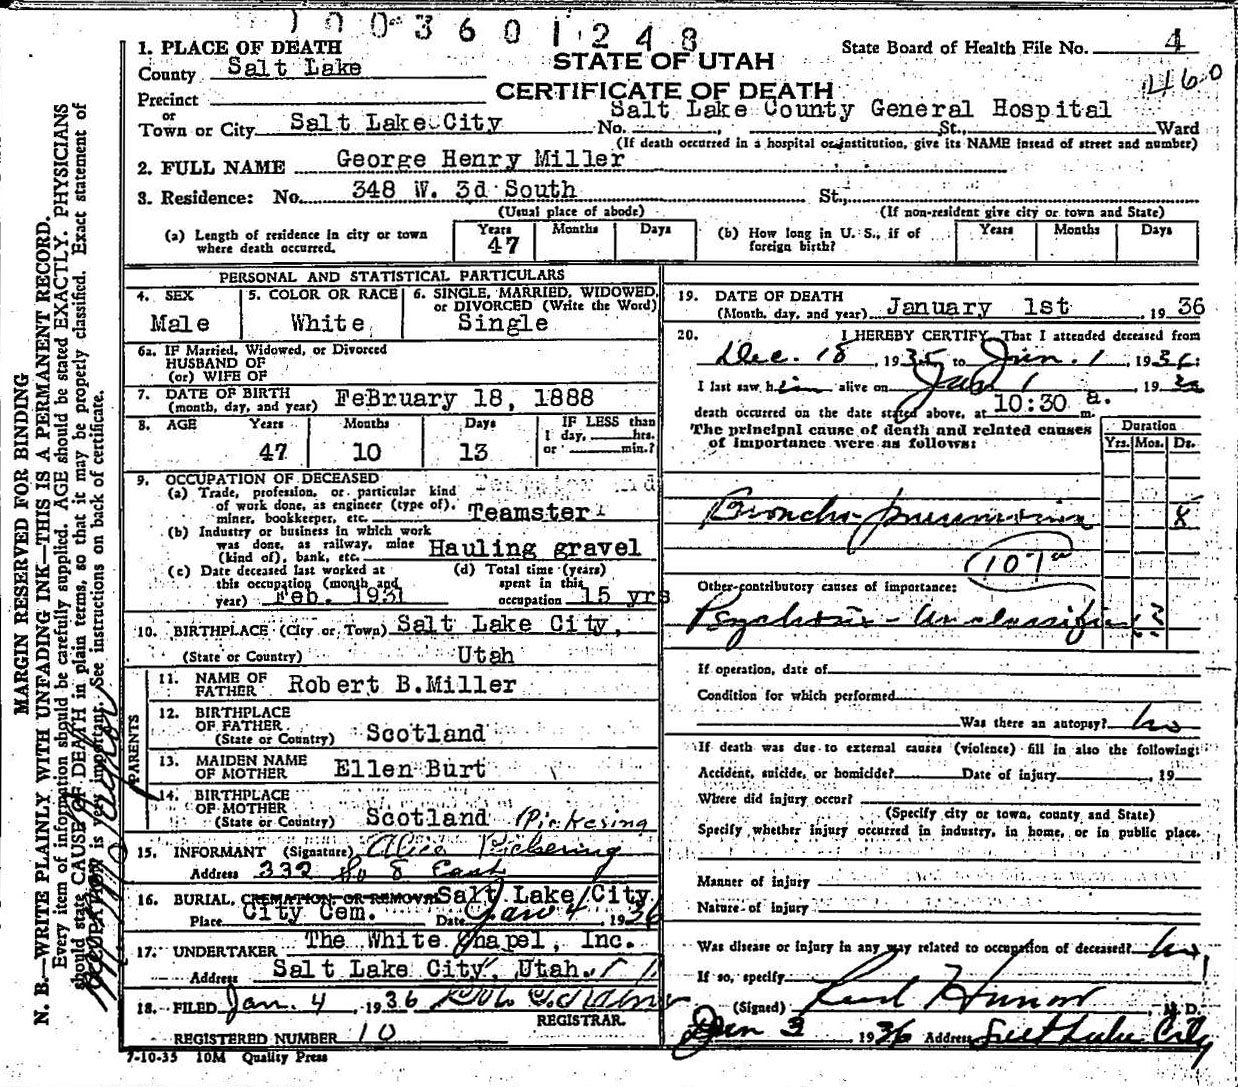 1003601248
1. PLACE OF DEATH
County Salt Lake
Precinct
or
Town or City Salt Lake City
STATE OF UTAH
CERTIFICATE OF DEATH
State Board of Health File No. 4
460
Salt Lake County General Hospital
No. , St., Ward
(If death occurred in a hospital or institution, give its NAME instead of street and number)
2. FULL NAME George Henry Miller
3. Residence: No. 348 W. 3d South St.,
(Usual place of abode) (If non-resident give city or town and State)
(a) Length of residence in city or town where death occurred. Years 47 Months Days
(b) How long in U. S., if of foreign birth? Years Months Days
PERSONAL AND STATISTICAL PARTICULARS
4. SEX Male
5. COLOR OR RACE White
6. SINGLE, MARRIED, WIDOWED, or DIVORCED (Write the Word) Single
6a. IF Married, Widowed, or Divorced
HUSBAND OF
(or) WIFE OF
7. DATE OF BIRTH
(month, day, and year) FeBruary 18, 1888
8. AGE Years 47 Months 10 Days 13
IF LESS than
1 day, hrs.
or min.?
9. OCCUPATION OF DECEASED
(a) Trade, profession, or particular kind
of work done, as engineer (type of).
miner, bookkeeper, etc. Teamster
(b) Industry or business in which work
was done, as railway, mine
(kind of), bank, etc. Hauling gravel
(c) Date deceased last worked at
this occupation (month and
year) Feb. 1931
(d) Total time (years)
spent in this
occupation 15 yrs
10. BIRTHPLACE (City or Town) Salt Lake City,
(State or Country) Utah
PARENTS
11. NAME OF
FATHER Robert B.Miller
12. BIRTHPLACE
OF FATHER
(State or Country) Scotland
13. MAIDEN NAME
OF MOTHER Ellen Burt
14. BIRTHPLACE
OF MOTHER
(State or Country) Scotland (Pickering
15. INFORMANT (Signature) Alice Pickering
Address 332 So 8 East
16. BURIAL, CREMATION, OR REMOVAL Salt Lake City
Place City Cem. Date Jan 4 1936
17. UNDERTAKER The White Chapel, Inc.
Address Salt Lake City, Utah.
18. FILED Jan. 4, 1936
REGISTRAR.
REGISTERED NUMBER 10
7-10-35 10M Quality Press
19. DATE OF DEATH
(Month, day, and year) January 1st , 1936
20. I HEREBY CERTIFY, That I attended deceased from
Dec. 18, 1935 to Jan. 1, 1936:
I last saw him alive on Jan 1, 1936
death occurred on the date stated above, at 10:30 a. m.
The principal cause of death and related causes
of importance were as follows:
Duration
Yrs. Mos. Ds.
Broncho-pneumonia 8
107a
Other contributory causes of importance:
Psychosis - Unclassified ?
If operation, date of
Condition for which performed
Was there an autopsy? no
If death was due to external causes (violence) fill in also the following:
Accident, suicide, or homicide? Date of injury , 19
Where did injury occur?
(Specify city or town, county and State)
Specify whether injury occurred in industry, in home, or in public place.
Manner of injury
Nature of injury
Was disease or injury in any way related to occupation of deceased? no
If so, specify
(Signed) M. D.
Jan 3 1936 Address Salt Lake City
MARGIN RESERVED FOR BINDING
N. B.—WRITE PLAINLY WITH UNFADING INK—THIS IS A PERMANENT RECORD.
Every item of information should be carefully supplied. AGE should be stated EXACTLY. PHYSICIANS
should state CAUSE OF DEATH in plain terms, so that it may be properly classified. Exact statement of
OCCUPATION is very important. See instructions on back of certificate.